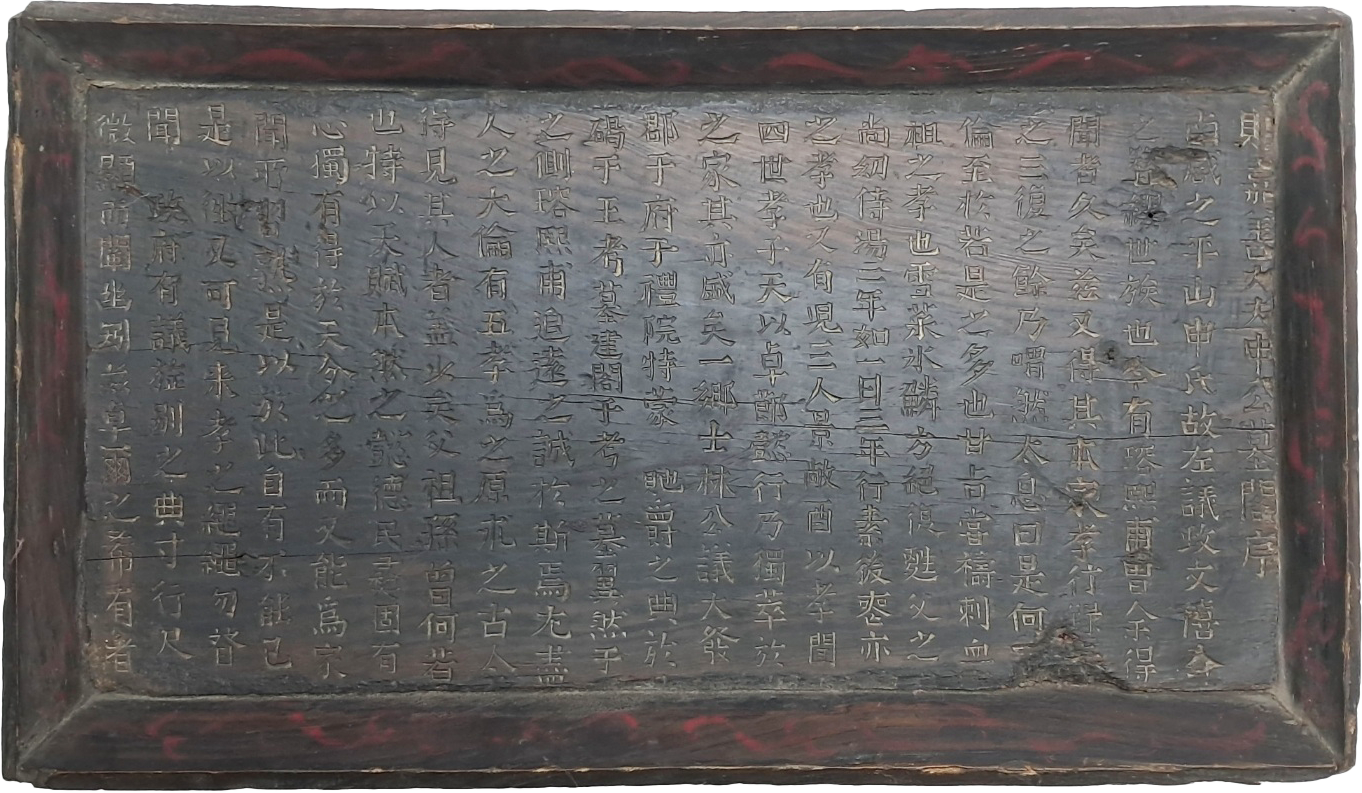 贈嘉善大夫申公墓閣序
咸之平山申氏故左議政文僖公
之 世族也今有瑢熙甫曾余得
聞者久矣玆又得其本家孝行
之三復之餘乃喟然太息曰是何
倫至於若是之多也甘占當禱刺血
祖之孝也雪菜氷鱗方絕復甦父之
尚幼侍湯三年如一日三年行素後喪亦
之孝也又有兒三人景敞酉以孝聞
四世孝乎天以卓節懿行乃獨萃於
之家其亦盛矣一鄕士林公議大發
郡于府于禮院特蒙 貤爵之典於
碣于王考墓建閣于考之墓翌然于
之側瑢熙甫追遠之誠於斯焉尤盡
人之大倫有五孝爲之原求之古今
得見其人者盖少矣父祖孫曾何若
也特以天賦本然之懿德民 固有
心獨有得於天分之多而又能爲家
聞平習 是以於此自有不能已
是以 又可見來孝之繩繩勿替
聞 政府有議旌別之典寸行尺
微顯而闡幽 玆草爾之希有者